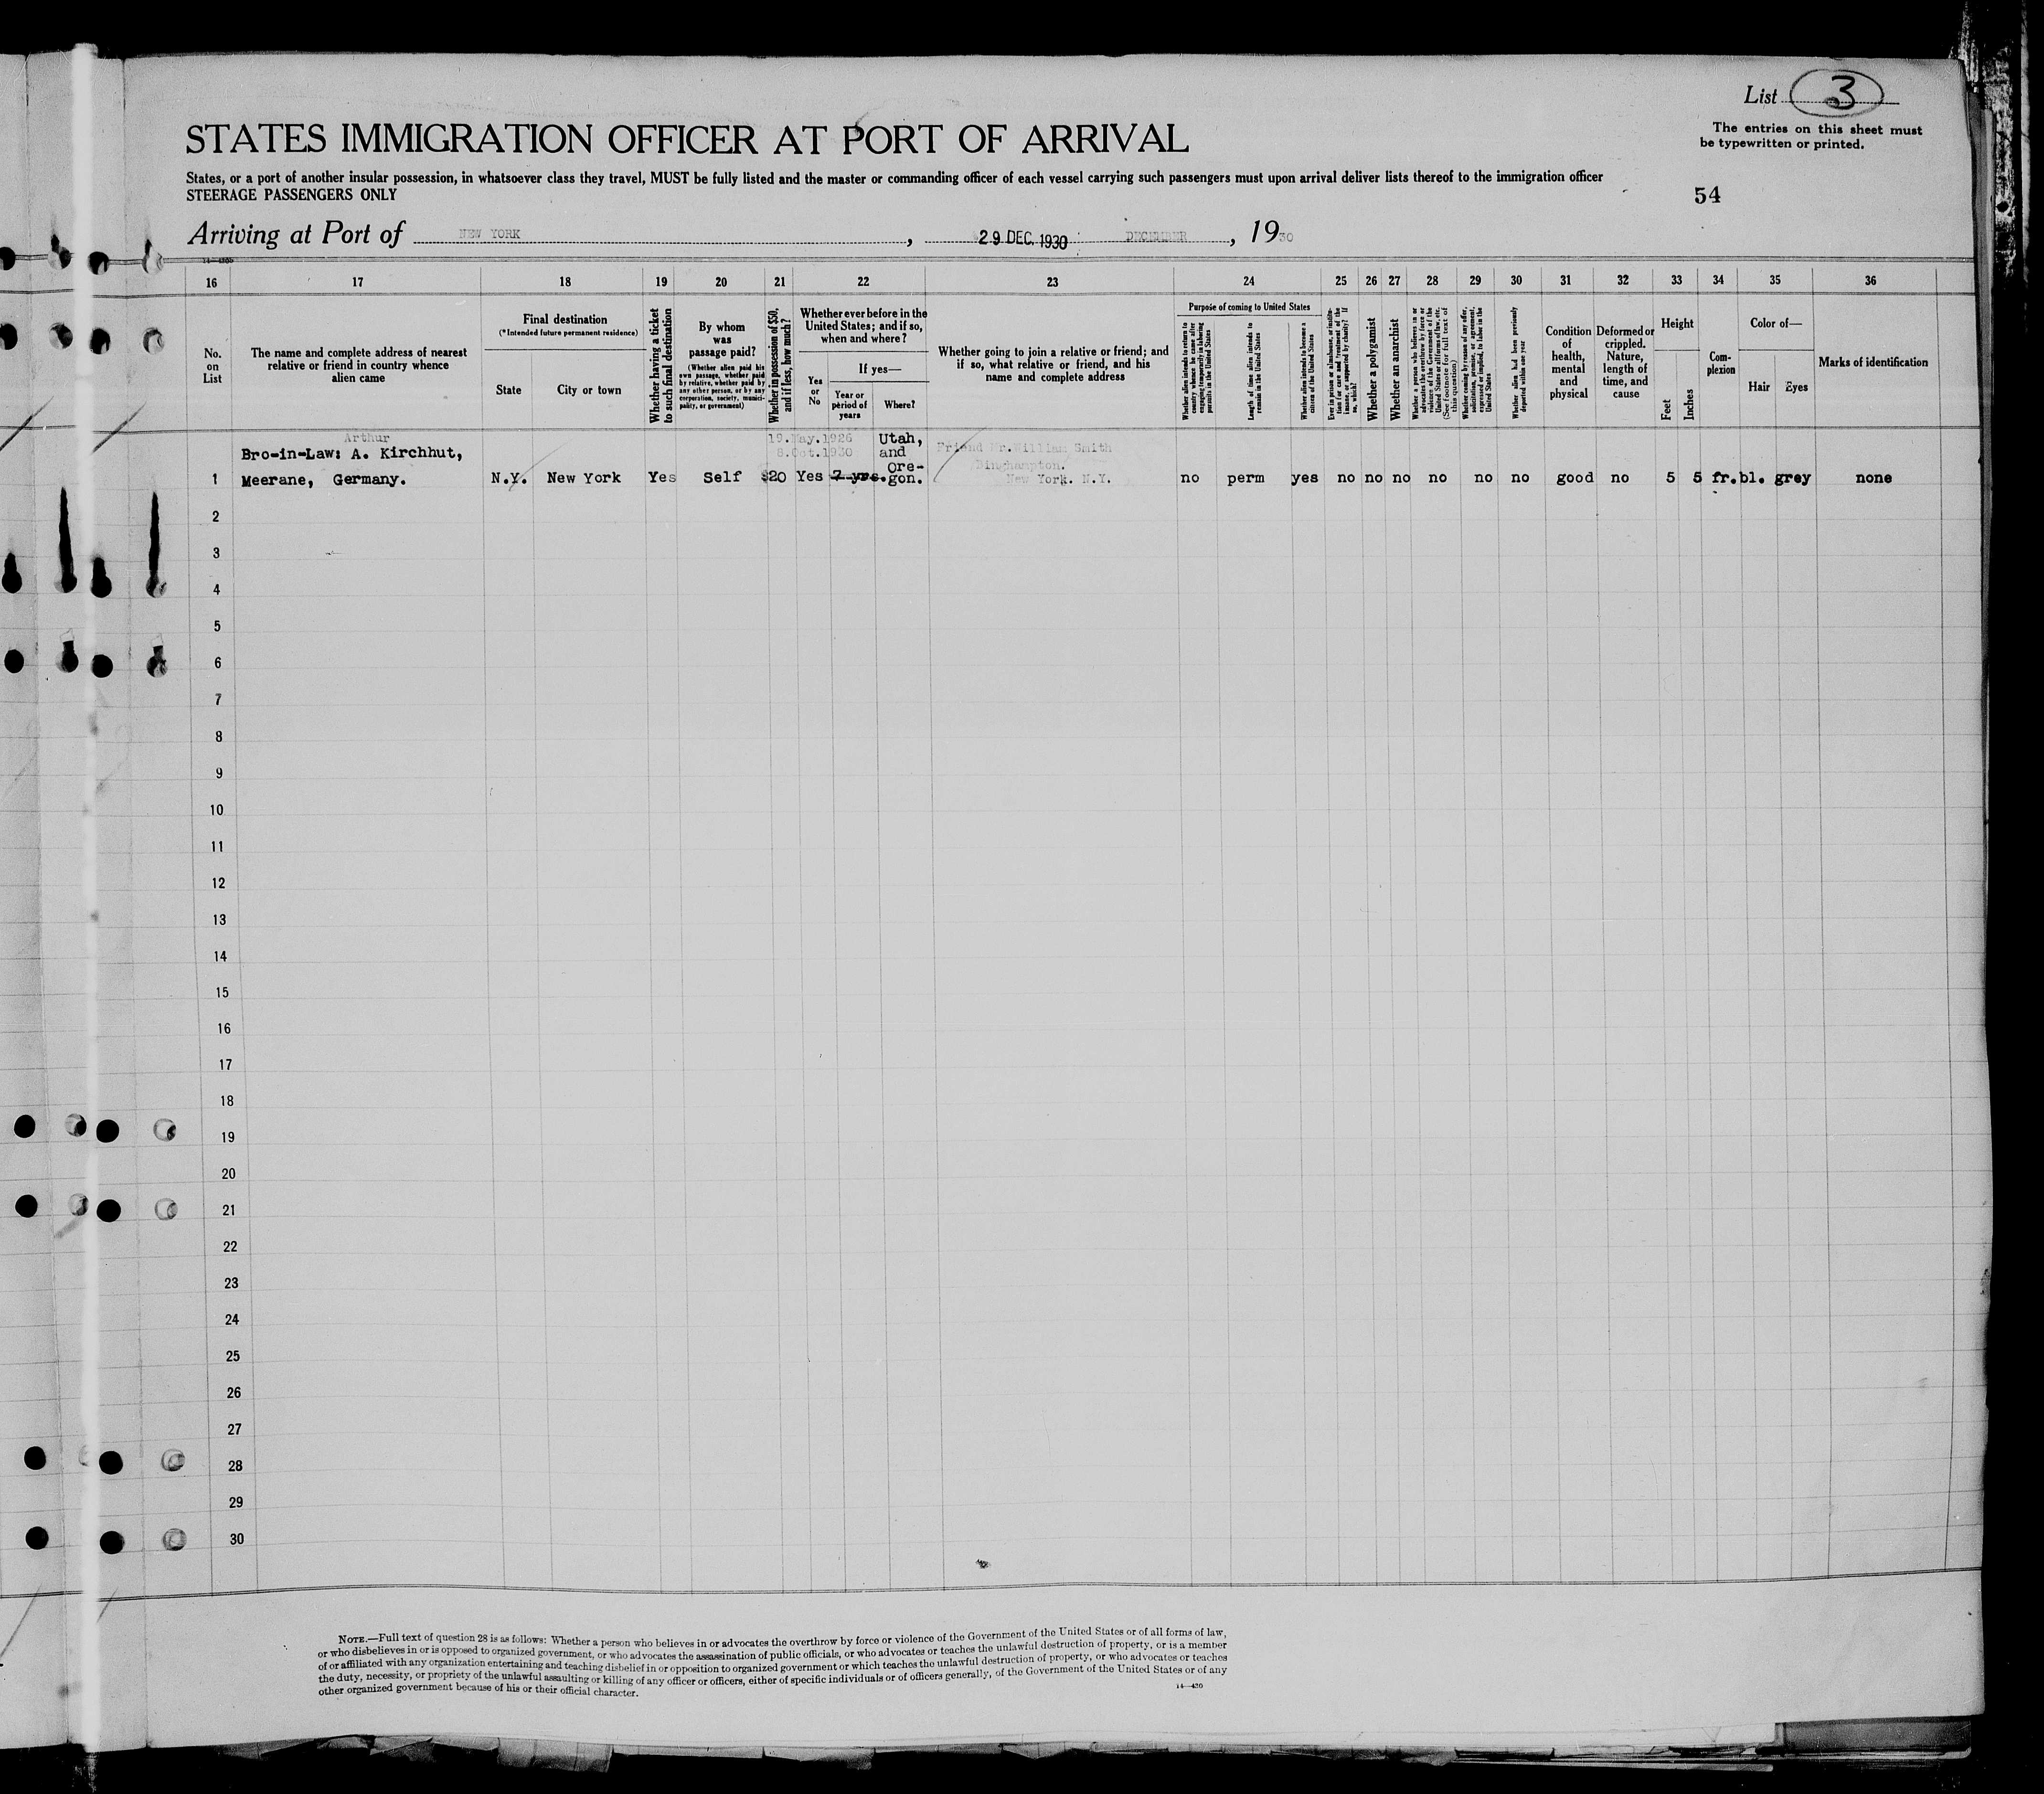 List 3
The entries on this sheet must
be typewritten or printed.
STATES IMMIGRATION OFFICER AT PORT OF ARRIVAL
States, or a port of another insular possession, in whatsoever class they travel, MUST be fully listed and the master or commanding officer of each vessel carrying such passengers must upon arrival deliver lists thereof to the immigration officer
STEERAGE PASSENGERS ONLY
54
Arriving at Port of NEW YORK, 29 DEC. 1930 DECEMBER, 1930
16 17 18 19 20 21 22 23 24 25 26 27 28 29 30 31 32 33 34 35 36
No.
on
List
The name and complete address of nearest
relative or friend in country whence
alien came
Final destination
(*Intended future permanent residence)
State
City or town
Whether having a ticket
to such final destination
By whom
was
passage paid?
(Whether alien paid his
own passage, whether paid
by relative, whether paid by
any other person, or by any
corporation, society, munici-
pality, or government)
Whether in possession of $50,
and if less, how much?
Whether ever before in the
United States; and if so,
when and where?
Yes
or
No
If yes—
Year or
period of
years
Where?
Whether going to join a relative or friend; and
if so, what relative or friend, and his
name and complete address
Purpose of coming to United States
Whether alien intends to return to
country whence he came after
engaging temporarily in laboring
pursuits in the United States
Length of time alien intends to
remain in the United States
Whether alien intends to become a
citizen of the United States
Ever in prison or almshouse, or institu-
tion for care and treatment of the
insane, or supported by charity? If
so, which?
Whether a polygamist
Whether an anarchist
Whether a person who believes in or
advocates the overthrow by force or
violence of the Government of the
United States or all forms of law, etc.
(See footnote for full text of
this question)
Whether coming by reason of any offer,
solicitation, promise, or agreement,
expressed or implied, to labor in the
United States
Whether alien had been previously
deported within one year
Condition
of
health,
mental
and
physical
Deformed or
crippled.
Nature,
length of
time, and
cause
Height
Feet
Inches
Com-
plexion
Color of—
Hair
Eyes
Marks of identification
Arthur
Bro-in-Law: A. Kirchhut,
19.May.1926 Utah,
8.Oct.1930 and
Friend Mr.William Smith
Binghampton.
Ore-
1 Meerane, Germany. N.Y. New York Yes Self $20 Yes 7 yrs. gon. New York. N.Y. no perm yes no no no no no no good no 5 5 fr. bl. grey none
2
3
4
5
6
7
8
9
10
11
12
13
14
15
16
17
18
19
20
21
22
23
24
25
26
27
28
29
30
NOTE.—Full text of question 28 is as follows: Whether a person who believes in or advocates the overthrow by force or violence of the Government of the United States or of all forms of law,
or who disbelieves in or is opposed to organized government, or who advocates the assassination of public officials, or who advocates or teaches the unlawful destruction of property, or is a member
of or affiliated with any organization entertaining and teaching disbelief in or opposition to organized government or which teaches the unlawful destruction of property, or who advocates or teaches
the duty, necessity, or propriety of the unlawful assaulting or killing of any officer or officers, either of specific individuals or of officers generally, of the Government of the United States or of any
other organized government because of his or their official character.
14—430